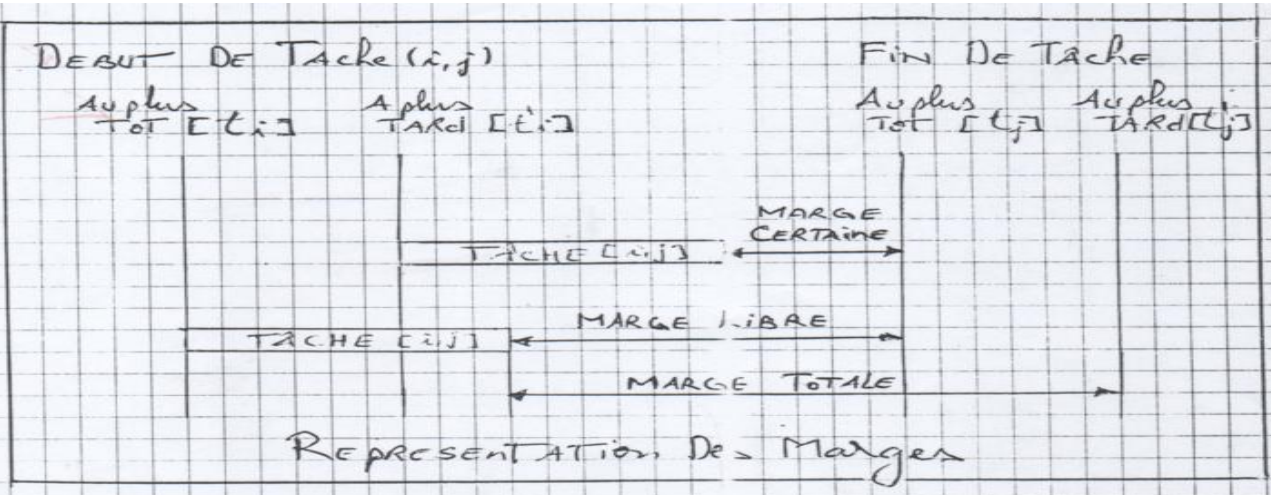 DEBUT DE TAche (i,j) FIN De TÂche
Au plus A plus Au plus Au plus
TOT [ti] TARd [t'i] TOT [tj] TARd [t'j]
MARGE
CERTAINE
TACHE [i,j]
MARGE LIBRE
TACHE [i,j]
MARGE TOTALE
REPRESENTATion Des Marges